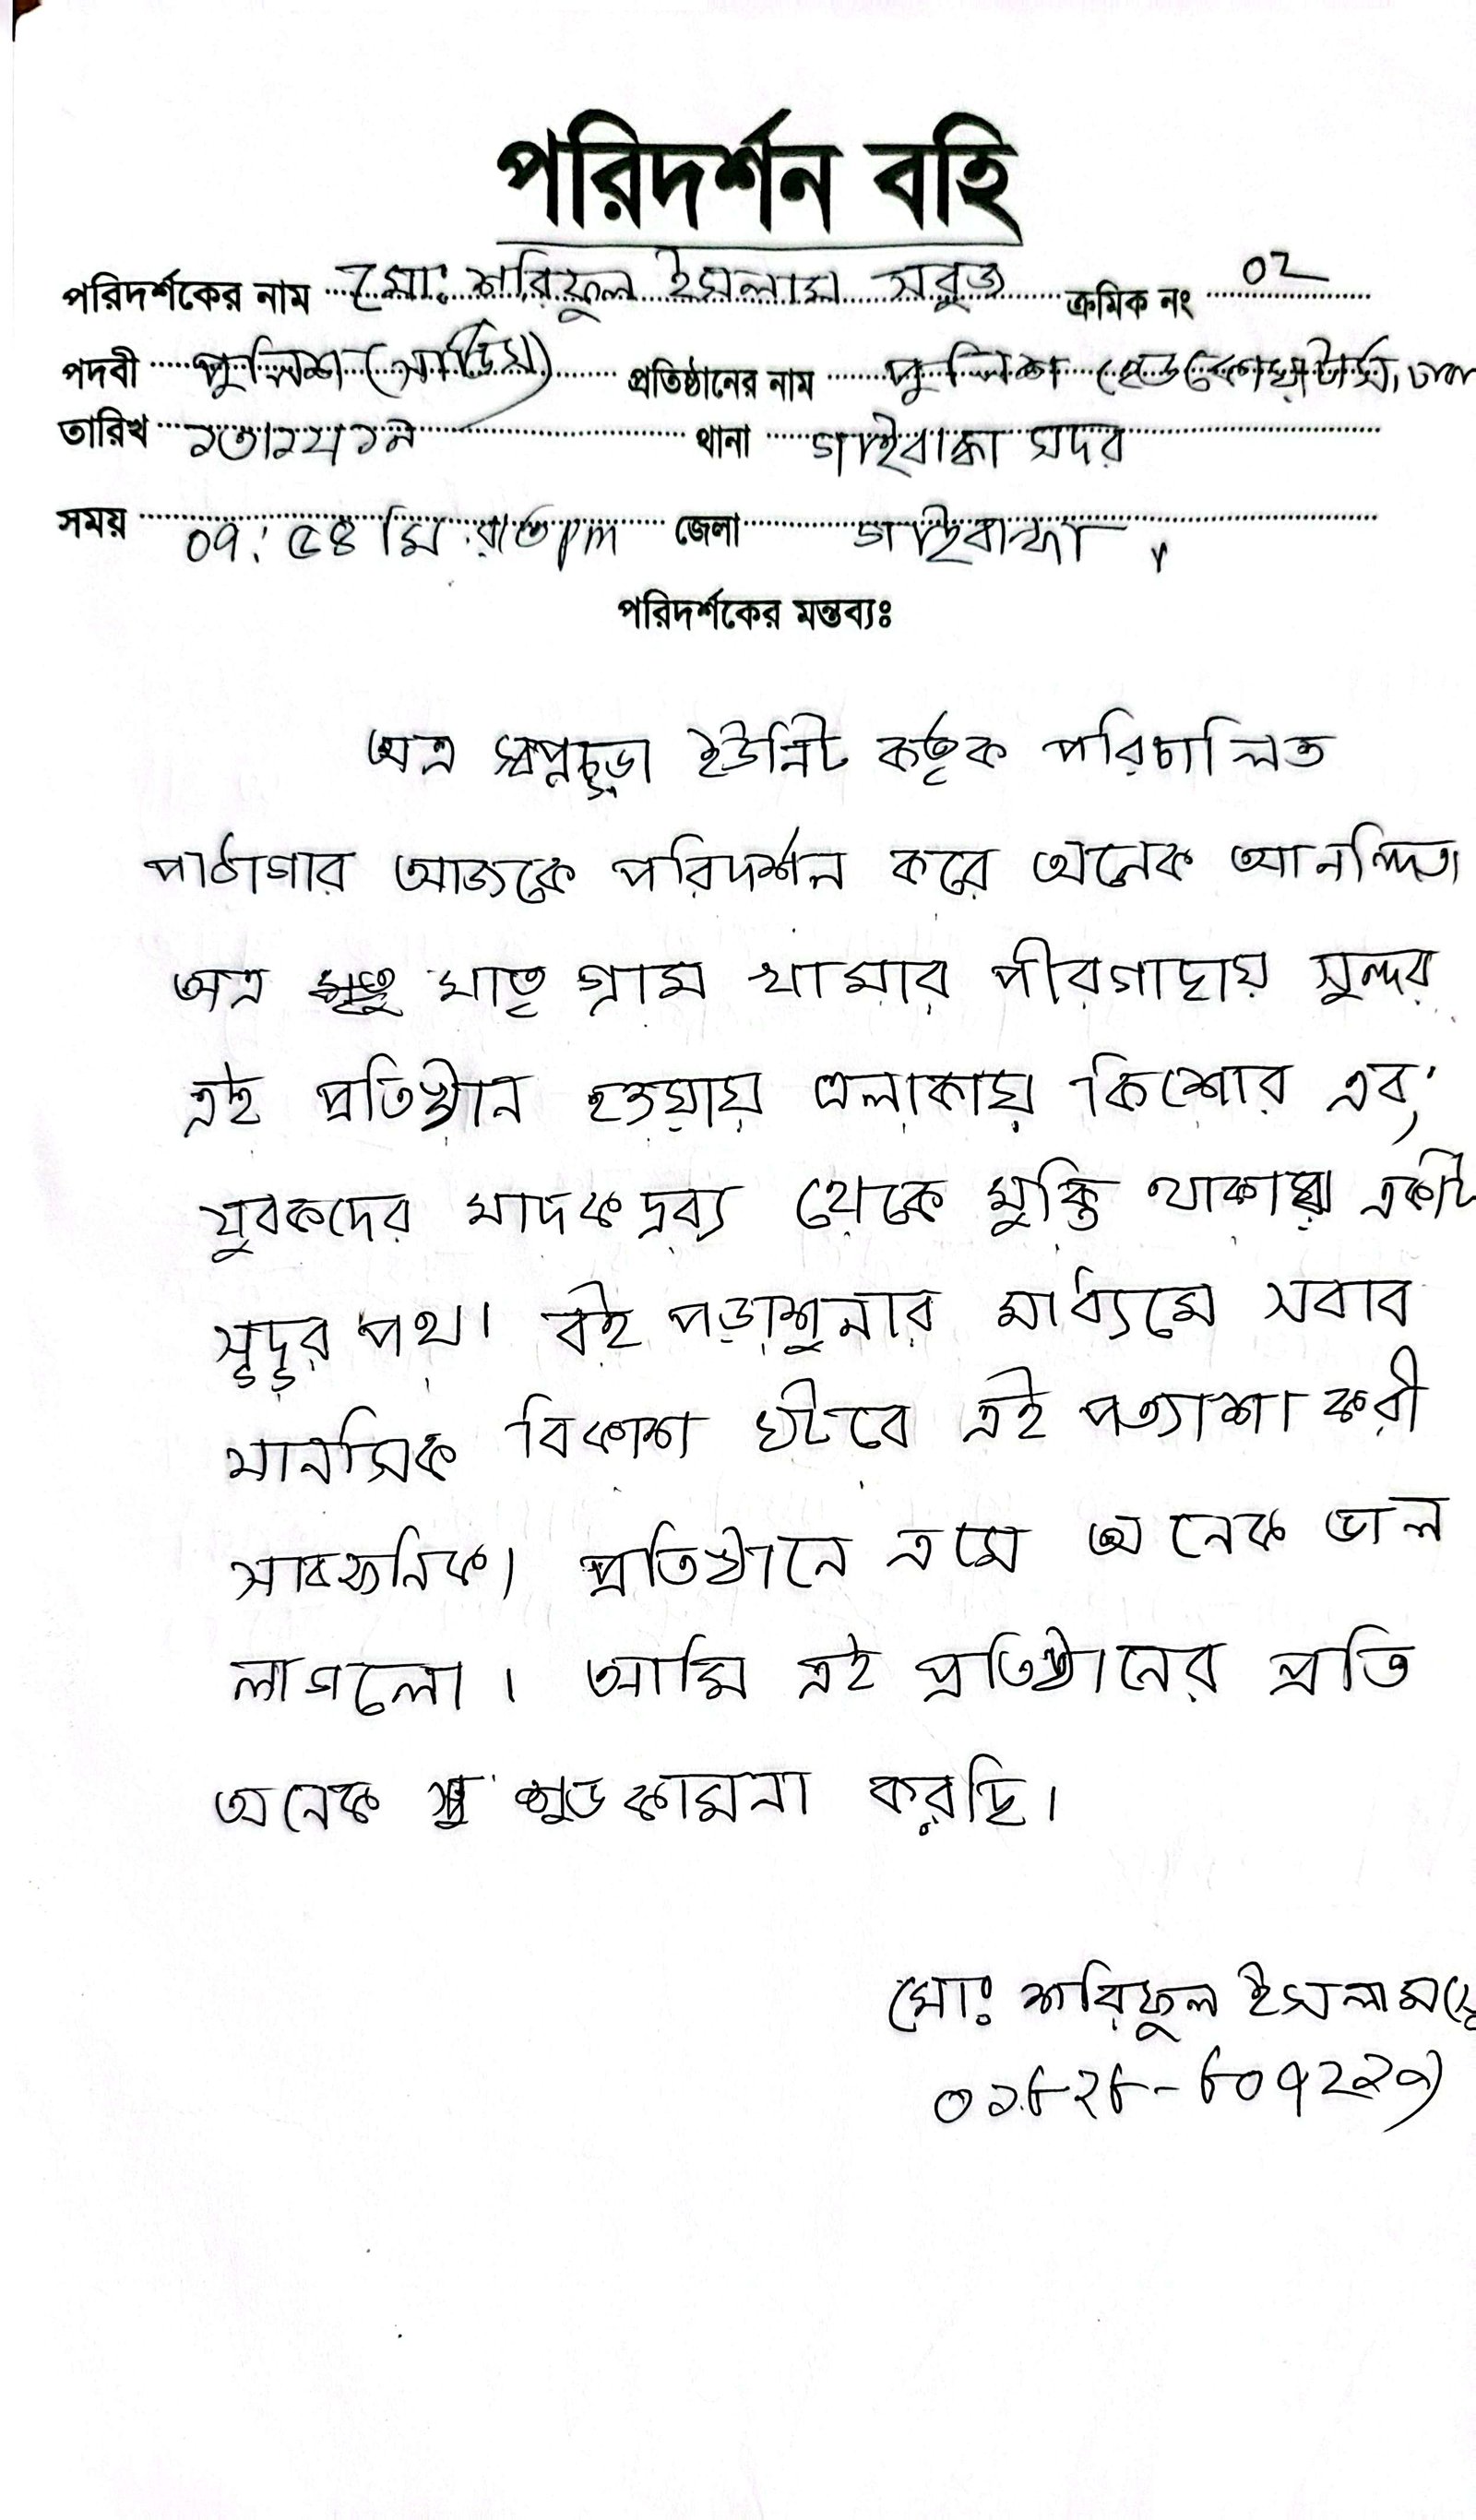 পরিদর্শন বহি
পরিদর্শকের নাম মোঃ শরিফুল ইসলাম সবুজ ক্রমিক নং 02
পদবী পুলিশ প্রতিষ্ঠানের নাম পুলিশ হেডকোয়ার্টার্স, ঢাকা
তারিখ থানা গাইবান্ধা সদর
সময় 09:৫৪ মি. রাত pm জেলা গাইবান্ধা
পরিদর্শকের মন্তব্যঃ
অত্র স্বপ্নচূড়া ইউনিট কর্তৃক পরিচালিত
পাঠাগার আজকে পরিদর্শন করে অনেক আনন্দিত
অত্র মাতৃ গ্রাম খামার পীরগাছায় সুন্দর
এই প্রতিষ্ঠান হওয়ায় এলাকায় কিশোর এবং
যুবকদের মাদকদ্রব্য থেকে মুক্তি থাকায় একটি
পথ। বই পড়াশুনার মাধ্যমে সবার
মানসিক বিকাশ ঘটবে এই প্রত্যাশা করী
প্রতিষ্ঠানে এসে অনেক ভাল
লাগলো। আমি এই প্রতিষ্ঠানের প্রতি
অনেক শুভকামনা করছি।
মোঃ শরিফুল ইসলাম